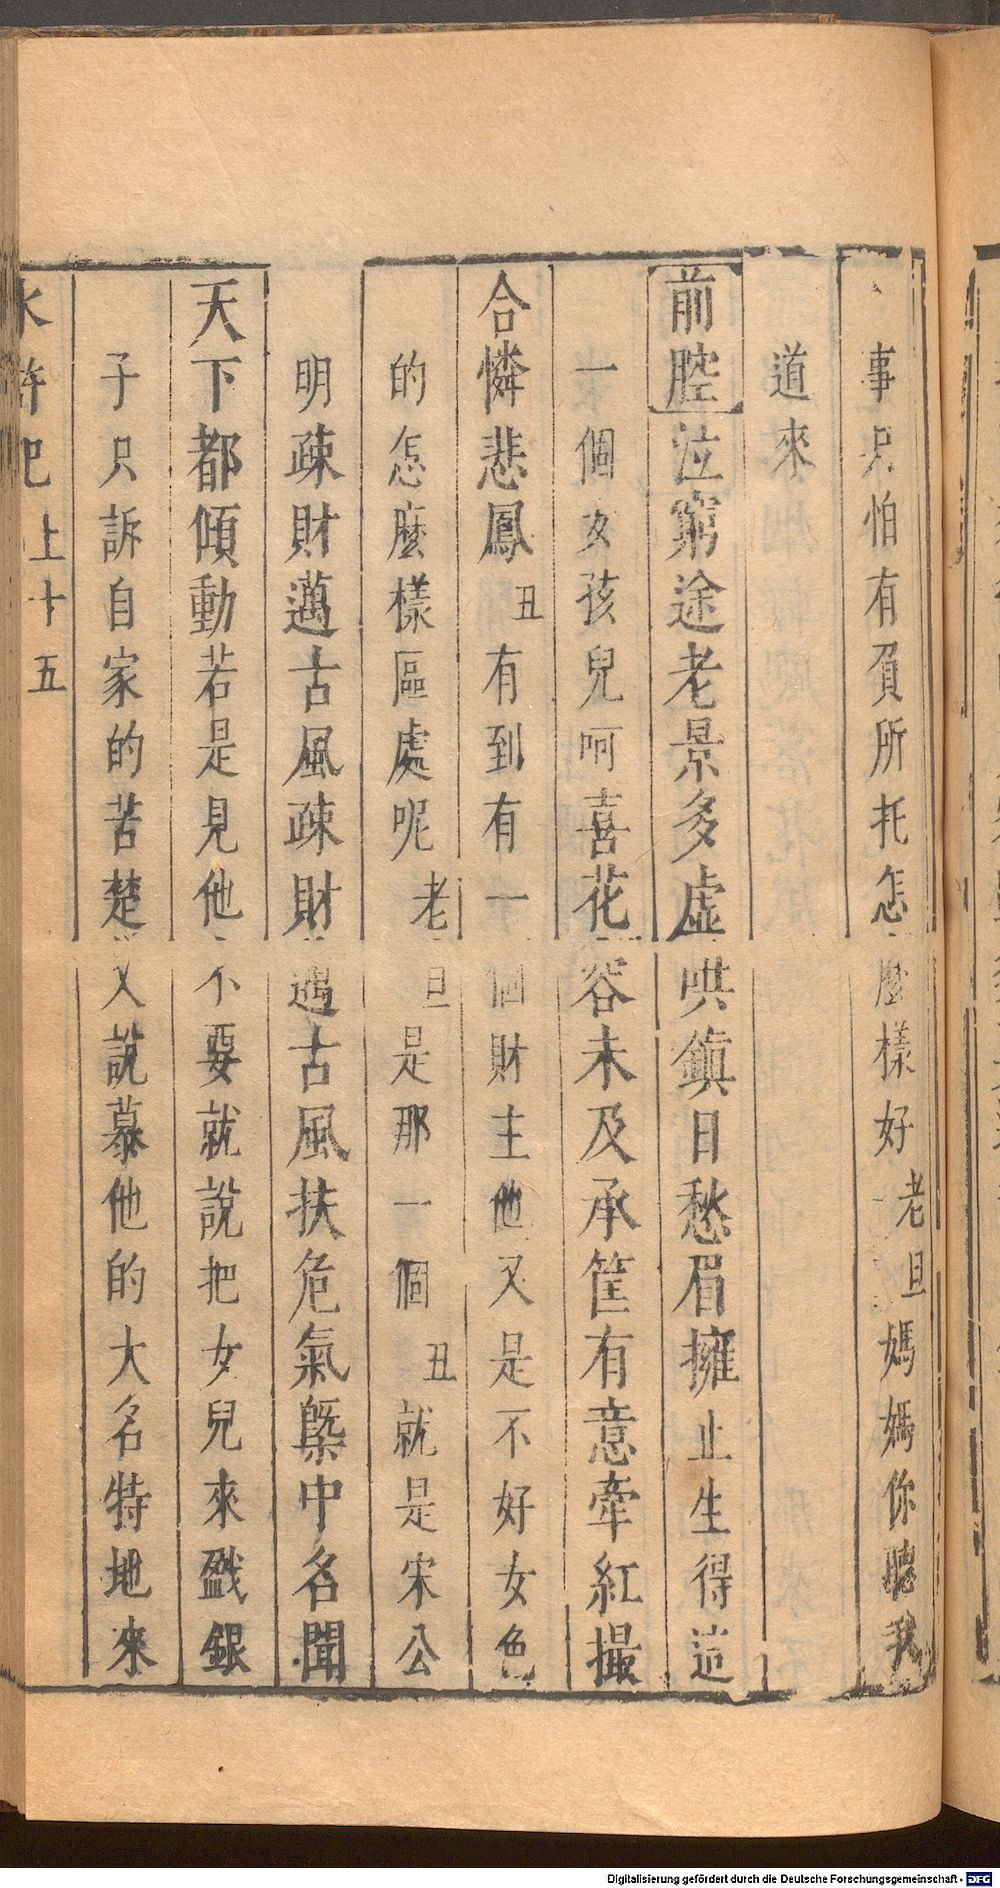 事只怕有負所托怎麼樣好老旦媽媽你聽我
道來
前腔泣窮途老景多虛哄鎮日愁眉擁止生得這
一個女孩兒呵喜花容未及承筐有意牽紅撮
合憐悲鳳丑有到有一個財主他又是不好女色
的怎麼樣區處呢老旦是那一個丑就是宋公
明疎財邁古風疎財邁古風扶危氣槩中名聞
天下都傾動若是見他不要就說把女兒來戤銀
子只訴自家的苦楚又說慕他的大名特地來
水滸記上十五
Digitalisierung gefördert durch die Deutsche Forschungsgemeinschaft - DFG